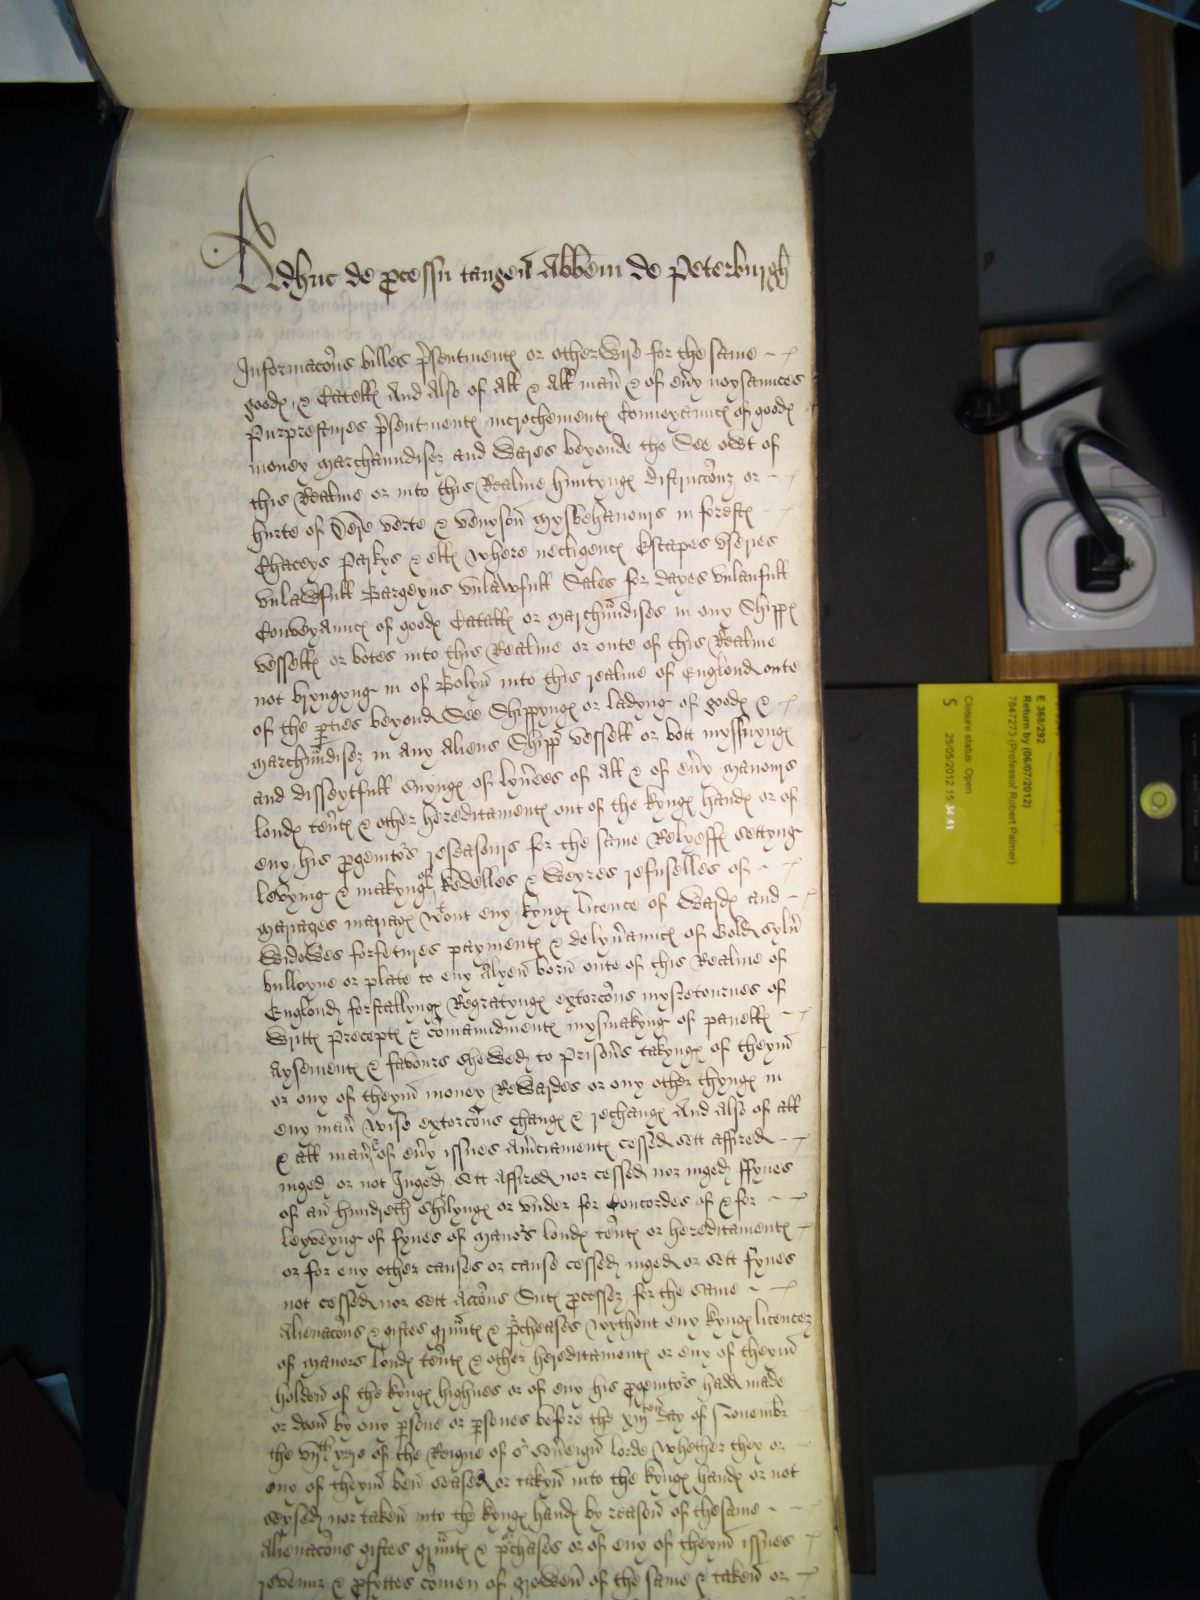 Adhuc de pcessu tangen Abbem de Peterburgh
Informacons billes psentmentes or otherwise for the same
goodes & Catells And Also of All & All man & of evy noysaunces
Purprestures psentmentes incrochementes Conveyaunces of goodes
money marchaundisez and Wares beyonde the See owt of
this Realme or into this Realme huntynges distruccons or
hurte of Dere verte & venyson mysbehavours in forestes
Chaceys Parkys & elles where necligences Escapes Useries
unlawfull Bargeyns unlawfull Sales for dayes unlaufull
Conveyaunces of goodes Catalles or marchundises in eny Shippes
vesselles or botes into this Realme or oute of this Realme
not bryngyng in of Bolyn into this realme of Englond oute
of the pties beyond See Shippynges or ladyng of goodes &
marchundisez in any Aliens Shipp vessell or bott myssuynges
and disseytfull suynges of lyverees of All & of evy manours
londes tentes & other hereditamentes out of the kynges handes or of
eny his pgenitors reseasours for the same Relyeffes settyng
levying & makyng of kedelles & Weyres refuselles of
mariages mariages Wtout eny kynges licence of Wardes and
Widowes forfetures paymentes & delyvaunces of Gold sylv
bulloyne or plate to eny Alyen born oute of this Realme of
Englond forstallynges Regratynges extorcons mysretournes of
Writtes preceptes & comaundmentes mysmakyng of panelles
Aysementes & favours shewed to prisons takynges of theym
or eny of theym money Rewardes or any other thynges in
eny man wise extorcons changes & rechanges And Also of all
& all man of evy issues Amciamentes cessed sett affired
inged or not Inged sett Affired nor cessed nor inged ffynes
of an hundreth shilynges or under for Concordes of & for
leyveyng of fynes of manors londes tentes or hereditamentes
or for eny other causes or cause cessed inged or sett fynes
not cessed nor sett Accons Sutes pcessez for the same
Alienacons & giftes grauntes & pcheases wythout eny kynges licencez
of manors londes tentes & other hereditamentes or eny of theym
holden of the kynges highnes or of eny his pgenitors hadd made
or don by eny psone or psones before the day of Novembr
the yere of the Reigne of or soveign lorde Whether they or
eny of theym ben seased or takyn into the kynges handes or not
seysed nor taken into the kynges handes by reason of the same
Alienacons giftes grauntes & pchases or of eny of theym issues
revenuz & pfyttes comen of growen of the same & taken or
E 368/292
Return by (06/07/2012)
7847273 (Professor Robert Palmer)
Closure status: Open
25/05/2012 15:34:41
S